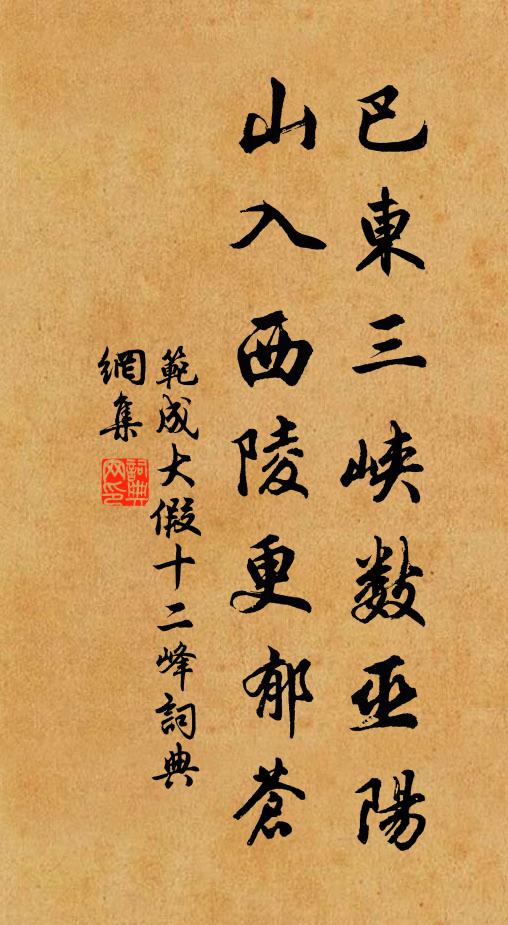 巴東三峽數巫陽
山入西陵更郁蒼
範成大假十二峰詞典
網集
詞典
网印